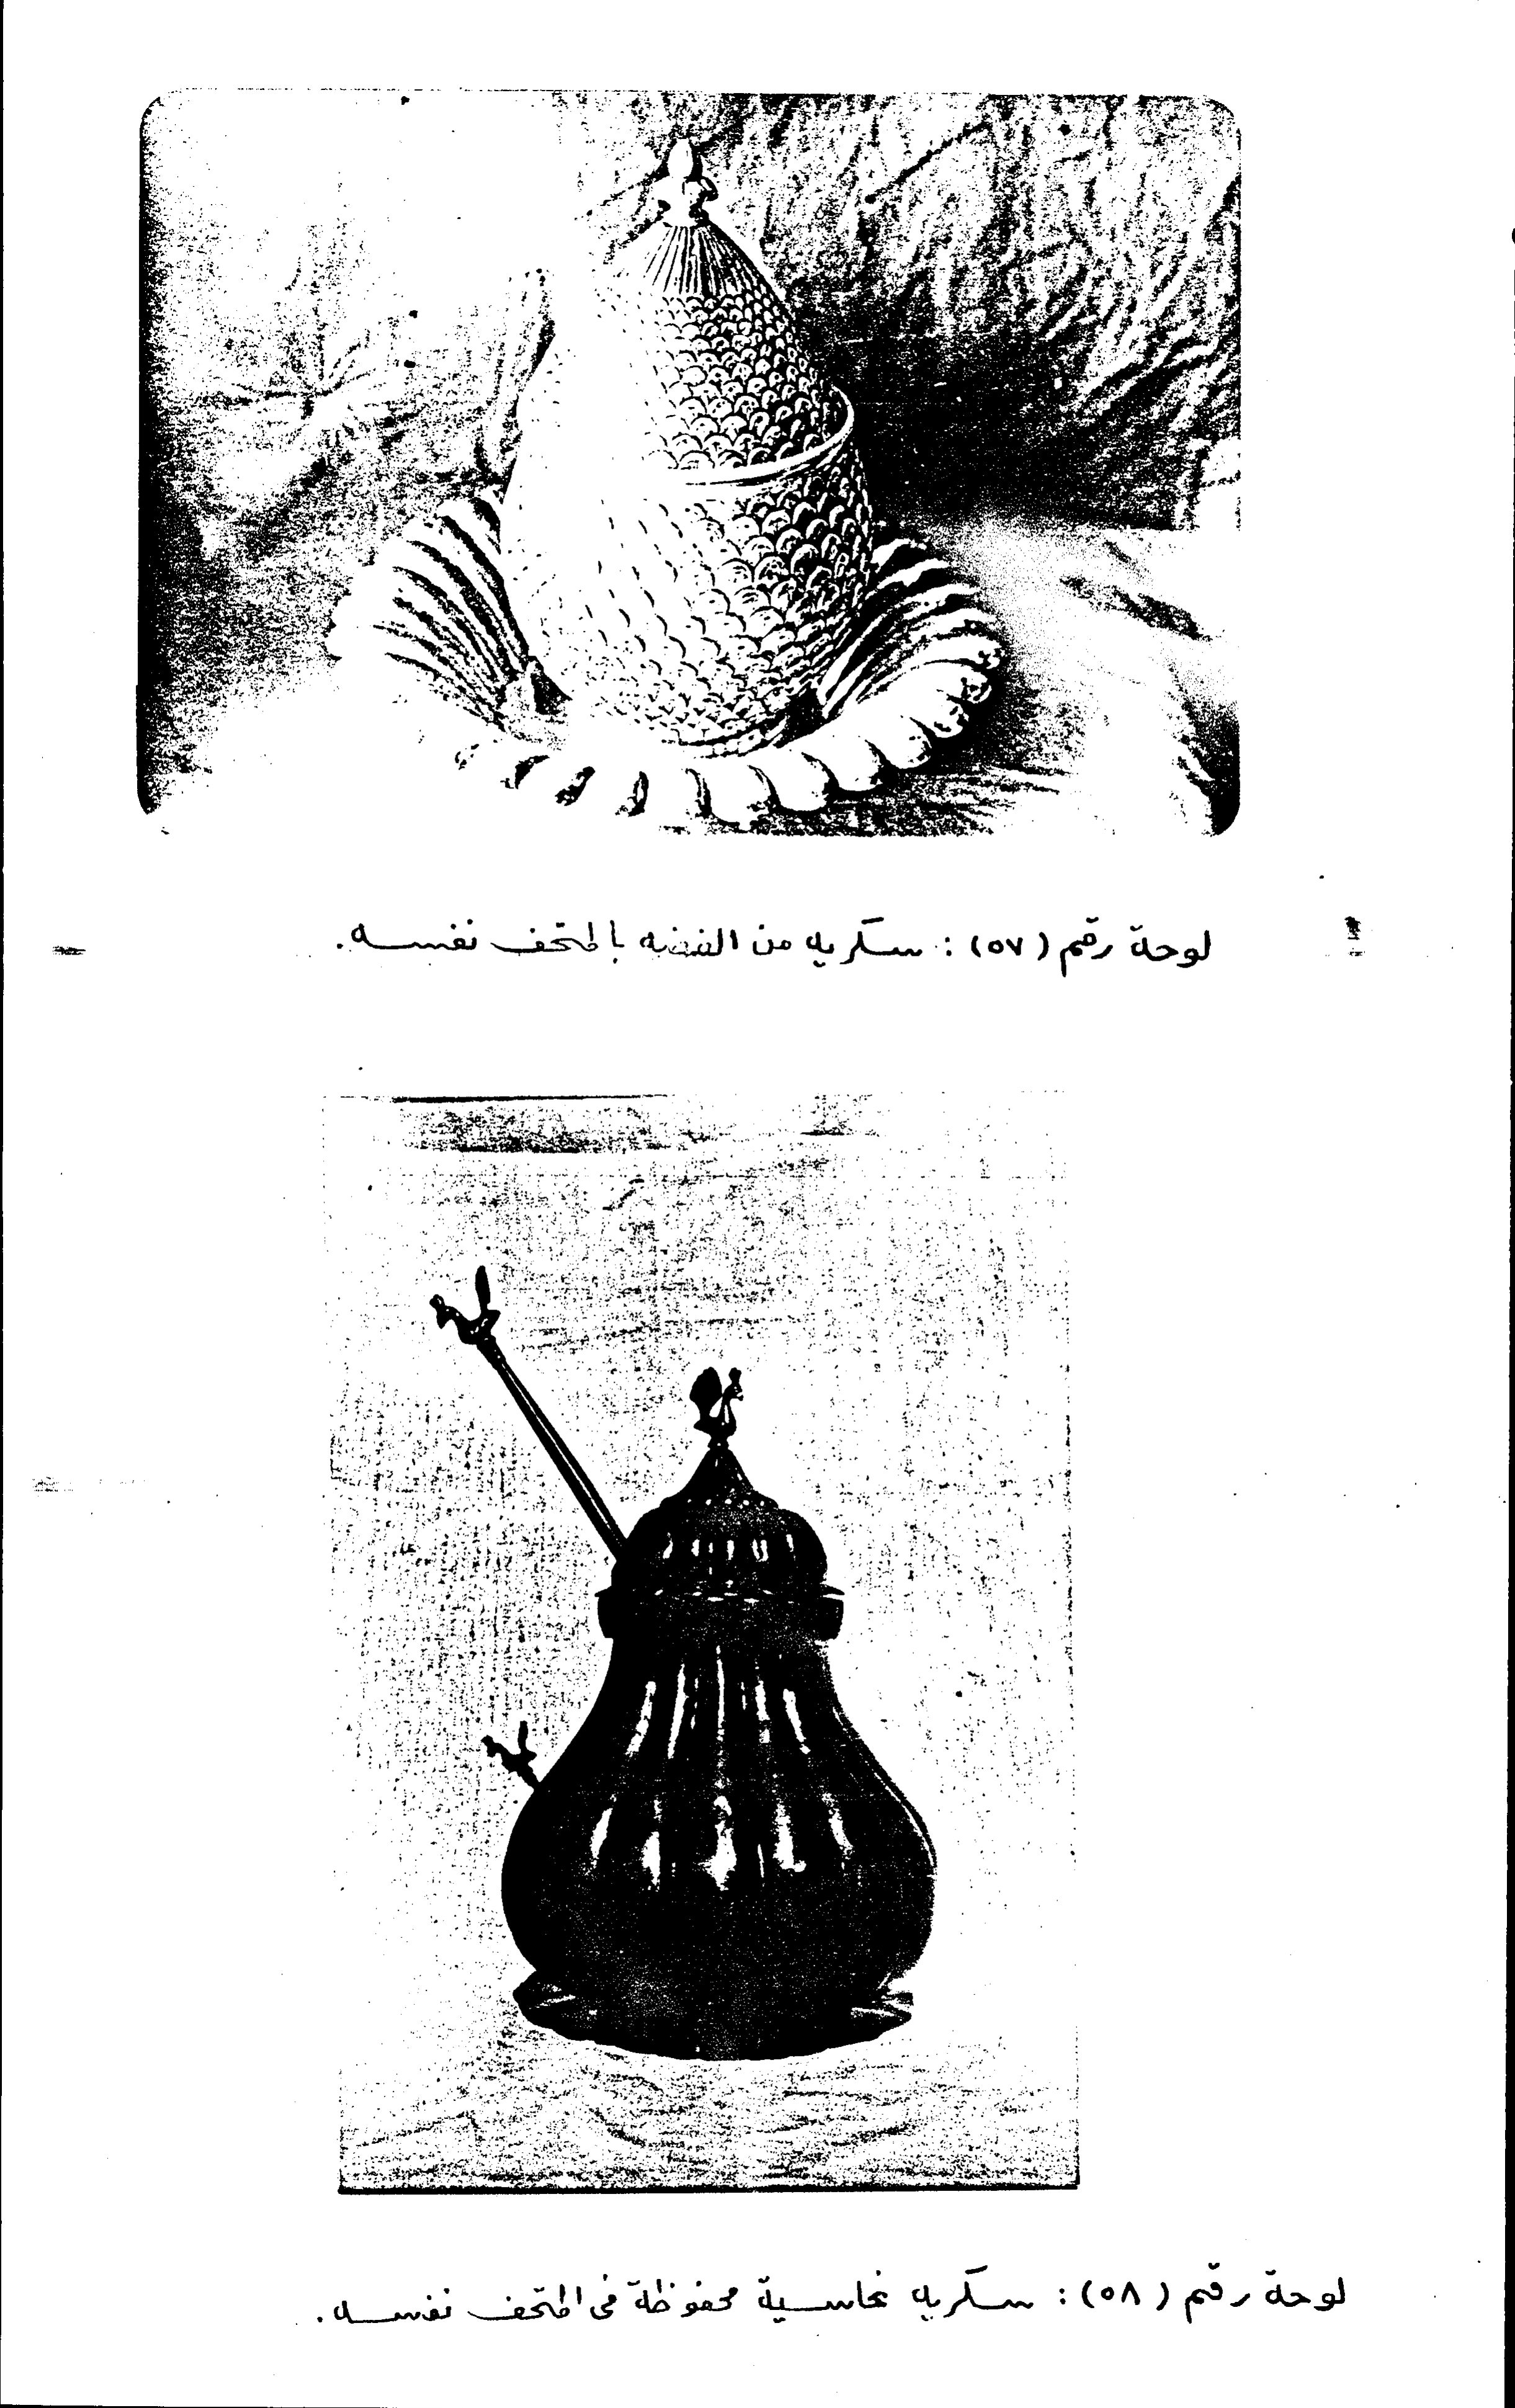 لوحة رقم (٥٧) : سكريه من الفضه بالمتحف نفسه.
لوحة رقم (٥٨) : سكريه نحاسية محفوظة فى المتحف نفسه.